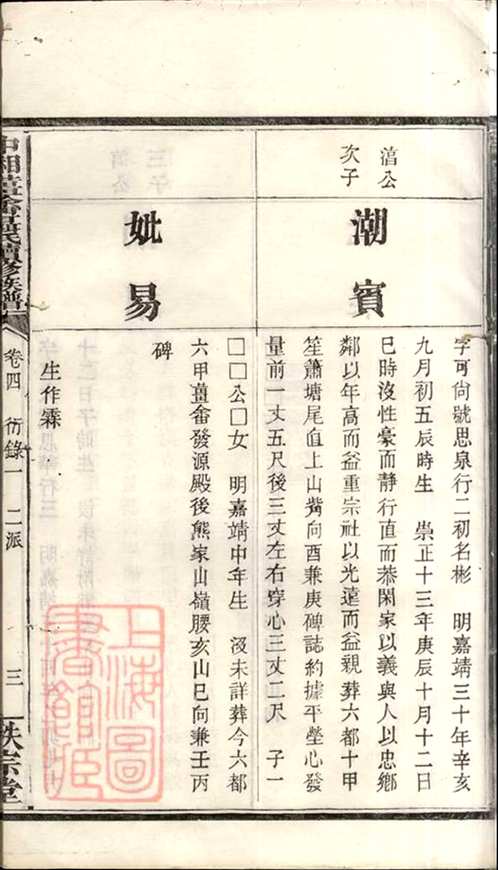 滔公
次子
潮賓
字可尙號思泉行二初名彬　明嘉靖三十年辛亥
九月初五辰時生　崇正十三年庚辰十月十二日
巳時沒性豪而靜行直而恭閑家以義與人以忠鄉
鄰以年高而益重宗社以光遠而益親葬六都十甲
笙蕭塘尾
上山觜向酉兼庚碑誌約據平塋心發
量前一丈五尺後三丈左右穿心三丈二尺　子一
妣易
□□公□女　明嘉靖中年生　沒未詳葬今六都
六甲薑畬發源殿後熊家山嶺腰亥山巳向兼壬丙
碑
生作霖
氏續修族譜
卷四
衍錄一
二派
三
敦宗堂
上海圖書館藏